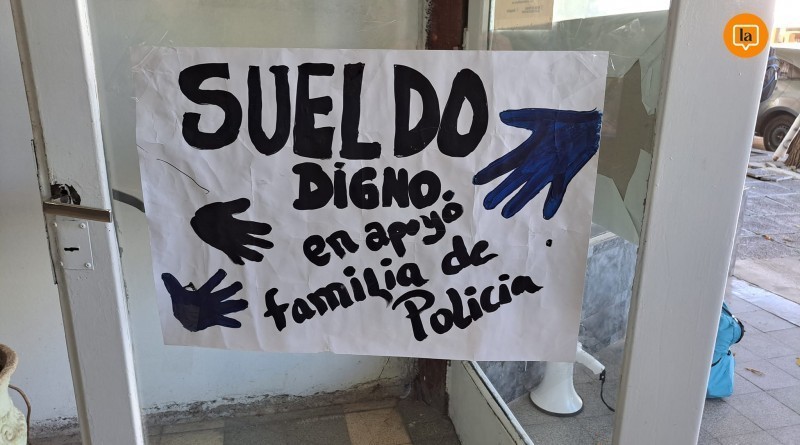 SUELDO
DIGNO.
en apoyo
familia de
Policia
la